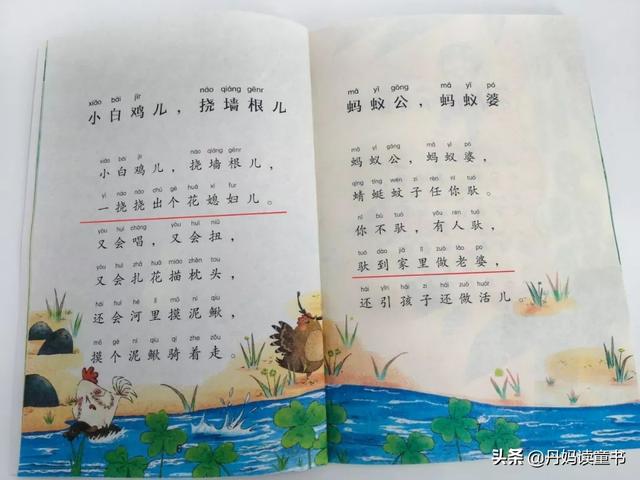 xiǎo bái jīr náo qiáng gēnr
小白鸡儿，挠墙根儿
xiǎo bái jīr náo qiáng gēnr
小白鸡儿，挠墙根儿，
yì náo náo chū gè huā xí fur
一挠挠出个花媳妇儿。
yòu huì chàng yòu huì niǔ
又会唱，又会扭，
yòu huì zhā huā miáo zhěn tou
又会扎花描枕头，
hái huì hé lǐ mō ní qiu
还会河里摸泥鳅，
mō gè ní qiu qí zhe zǒu
摸个泥鳅骑着走。
mǎ yǐ gōng mǎ yǐ pó
蚂蚁公，蚂蚁婆
mǎ yǐ gōng mǎ yǐ pó
蚂蚁公，蚂蚁婆，
qīng tíng wén zi rèn nǐ tuó
蜻蜓蚊子任你驮。
nǐ bù tuó yǒu rén tuó
你不驮，有人驮，
tuó dào jiā lǐ zuò lǎo po
驮到家里做老婆，
hái yǐn hái zi hái zuò huór
还引孩子还做活儿。
头条 @丹妈读童书